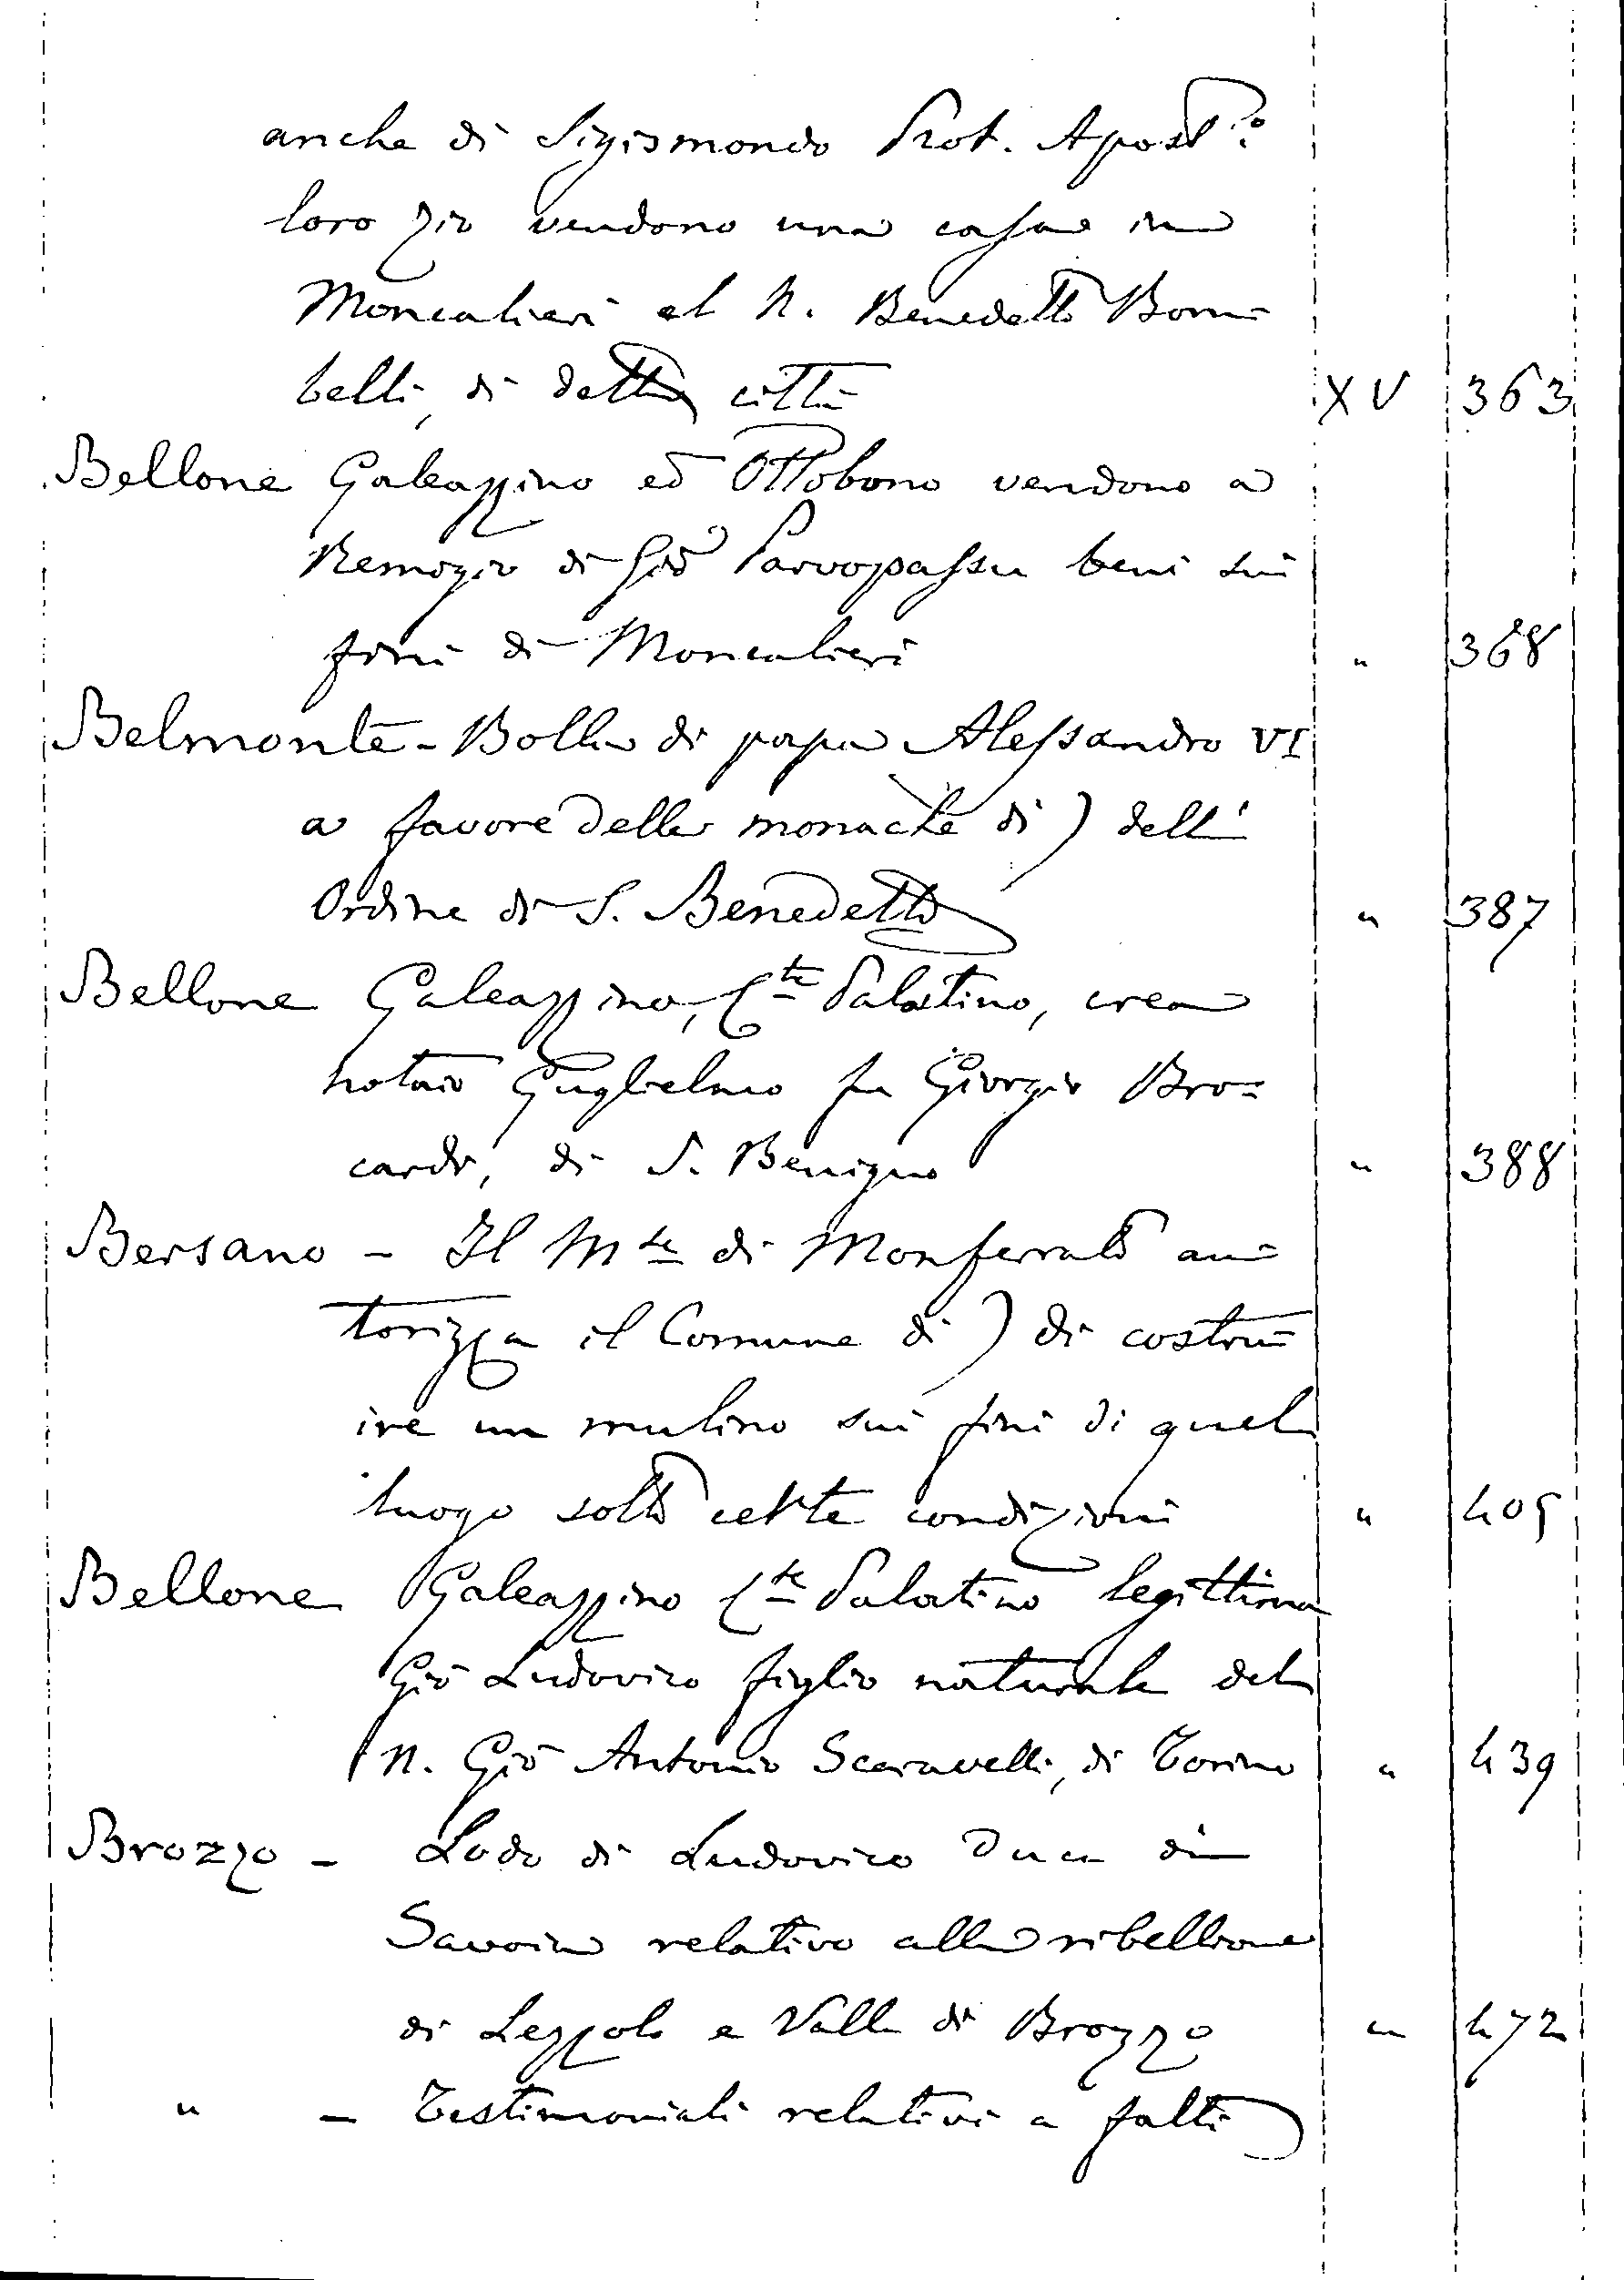 anche di Sigismondo Prot. Apost.º
loro zio vendono una casa in
Moncalieri al N. Benedetto Bom=
belli, di detta città XV 363
Bellone Galeazzino ed Ottobono vendono a
Remigio di Giò Parvopassu beni sui
fini di Moncalieri " 368
Belmonte - Bolla di papa Alessandro VI
a favore delle monache di ) dell'
Ordine di S. Benedetto " 387
Bellone Galeazzino, Cte Palatino, crea
notaio Guglielmo fu Giorgio Bro=
cardo, di S. Benigno " 388
Bersano - Il Mse di Monferrato au=
torizza il Comune di ) di costru=
ire un mulino sui fini di quel
luogo sotto certe condizioni " 405
Bellone Galeazzino Cte Palatino legittima
Giò Ludovico figlio naturale del
N. Giò Antonio Scaravelli, di Torino " 439
Brozzo - Lodo di Ludovico Duca di
Savoia relativo alla ribellione
di Lezzolo e Valle di Brozzo " 472
" - Testimoniali relativi a fatti